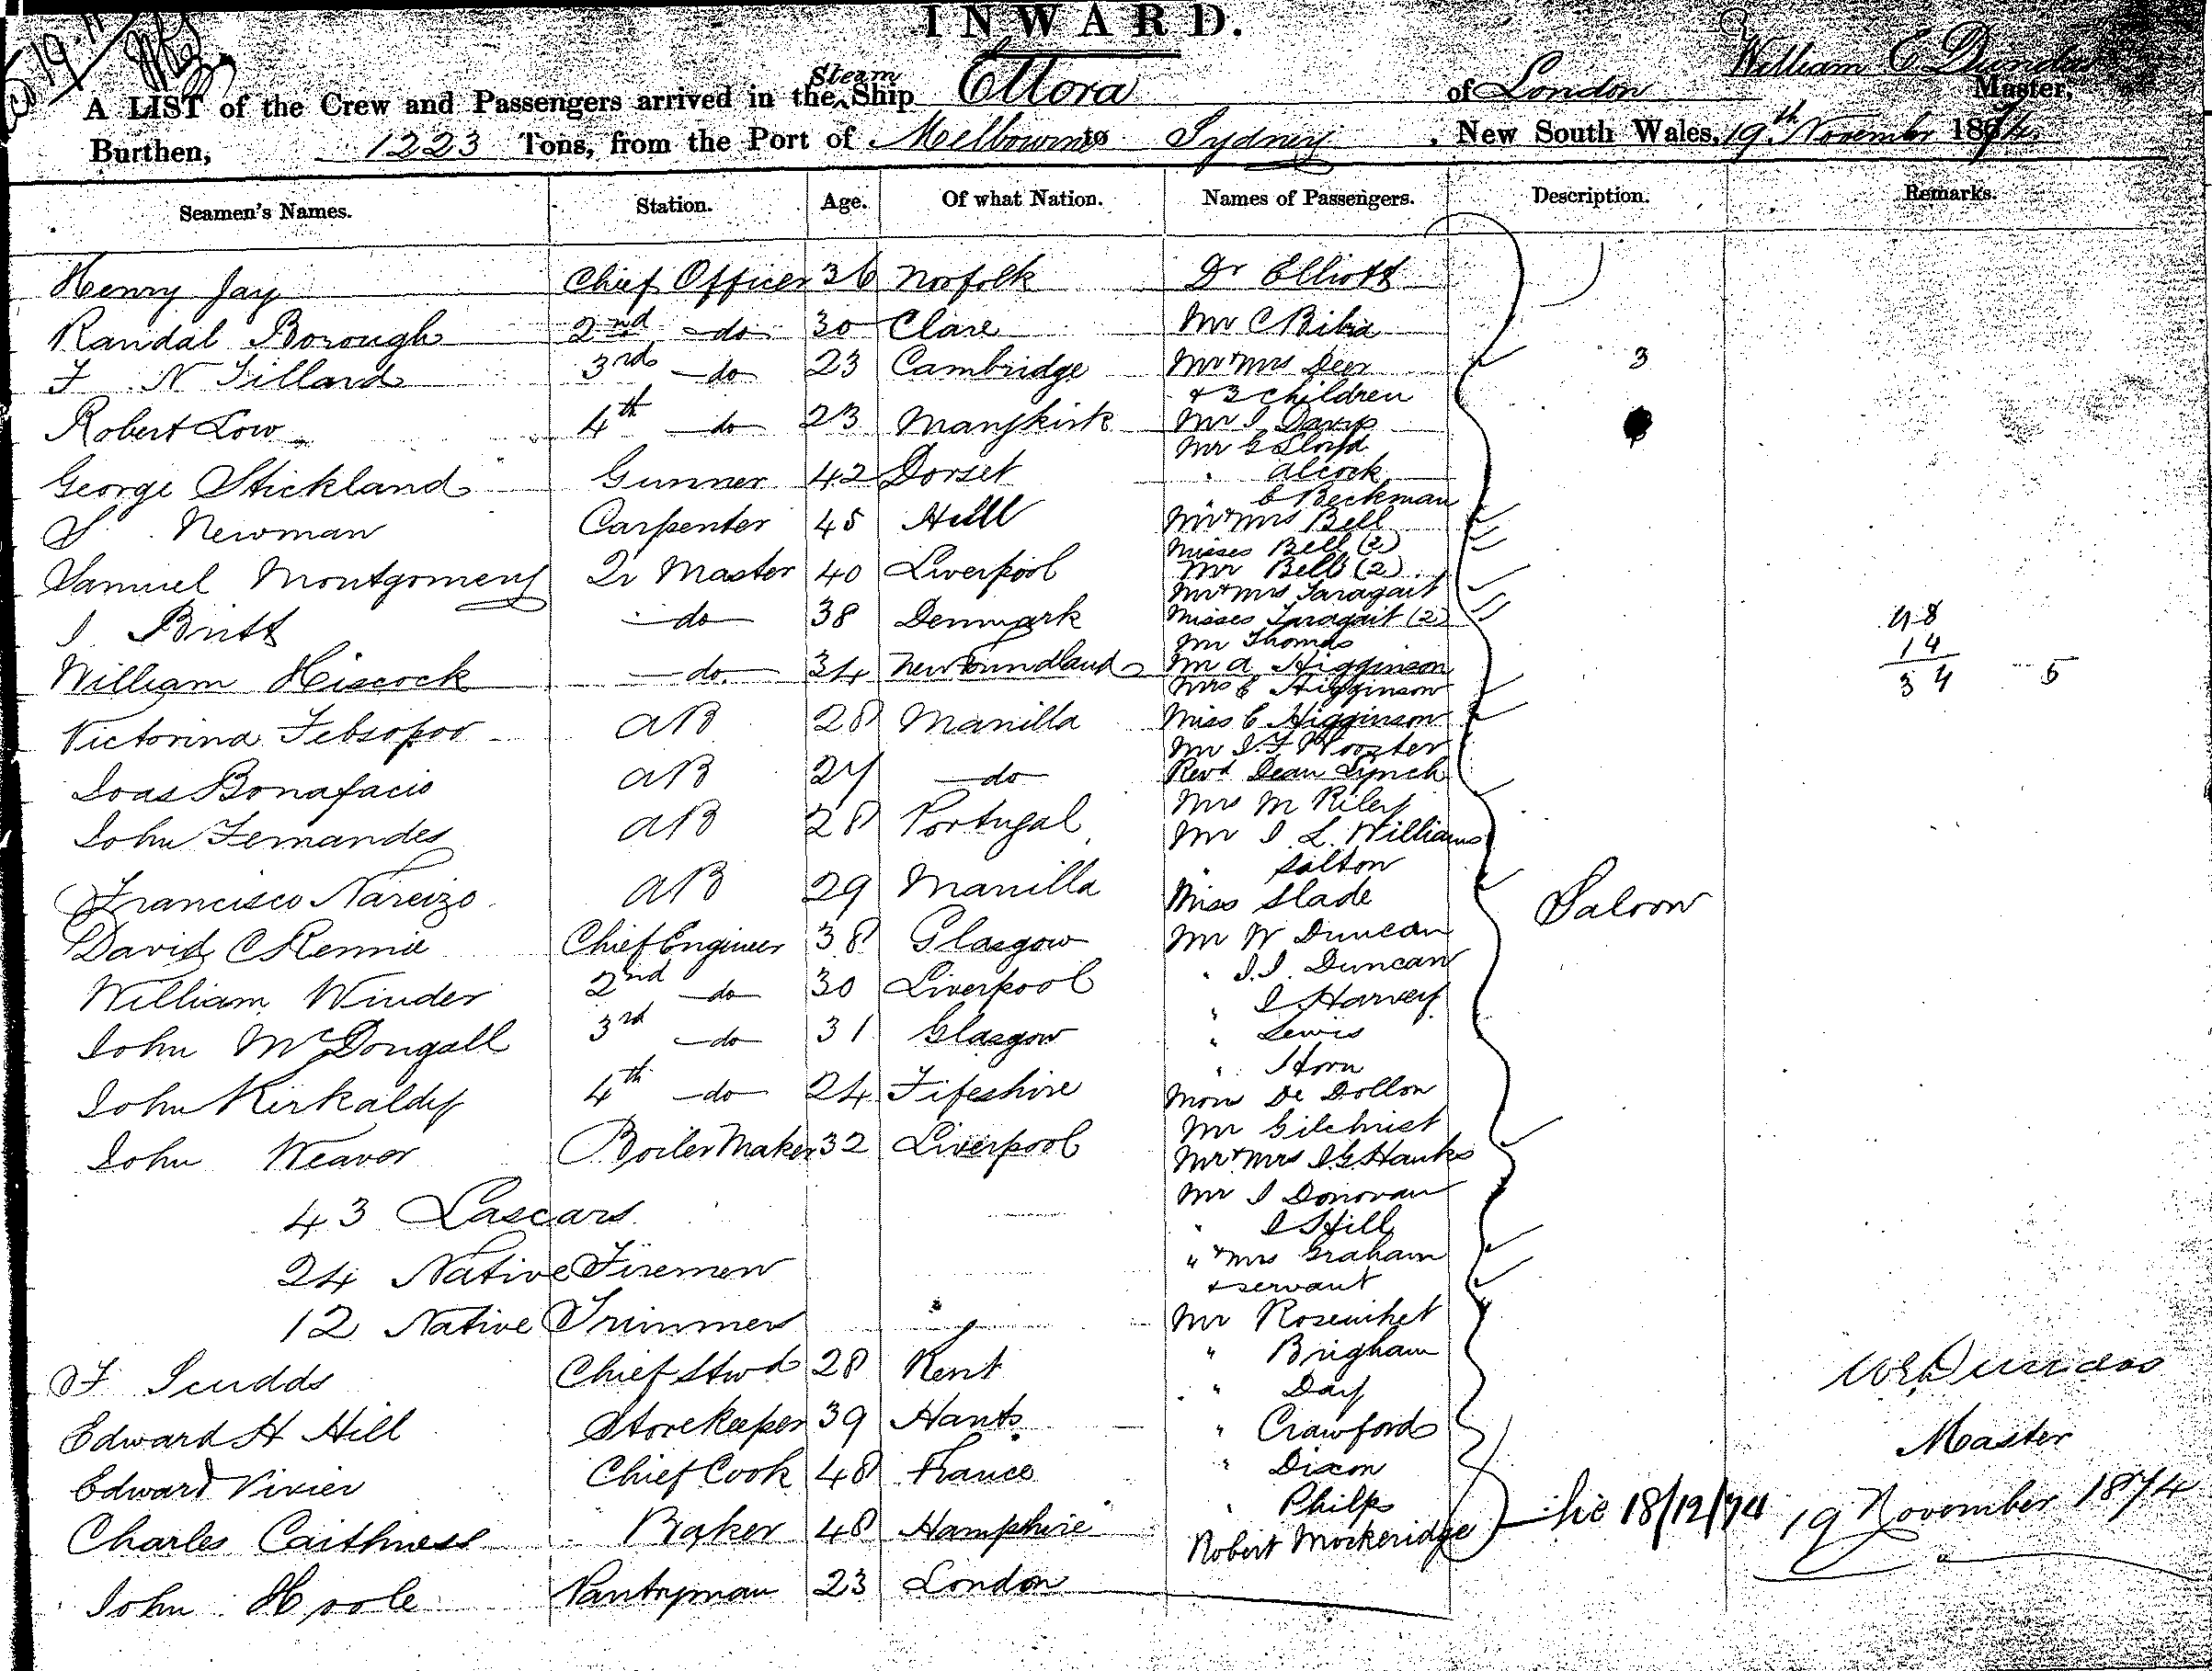 INWARD.
19.11
A LIST of the Crew and Passengers arrived in the Steam Ship Ellora of London William E Dundas Master,
Burthen, 1223 Tons, from the Port of Melbourne to Sydney, New South Wales, 19th November 1874
Seamen's Names. Station. Age. Of what Nation. Names of Passengers. Description. Remarks.
Henry Jay Chief Officer 36 Norfolk Dr Elliott
Randal Borough 2nd do 30 Clare Mr C
F N Tillard 3rd do 23 Cambridge Mr & Mrs Deer 3
& 3 children
Robert Low 4th do 23 Mr I Davis
Mr G Lloyd
George Stickland Gunner 42 Dorset " Alcock
" C Beckman
S Newman Carpenter 45 Hull Mr & Mrs Bell
Misses Bell (2)
Samuel Montgomery Qr Master 40 Liverpool Mr Bell (2)
Mr & Mrs Taragait
I Britt do 38 Denmark Misses Taragait (2) 48
Mr Thomas 14
William Hiscock do 34 Newfoundland Mr A Higginson 34 5
Mrs C Higginson
Victorina AB 28 Manilla Miss C Higginson
Mr I. F Wooster
Joas Bonafacio AB 27 do Revd Dean Lynch
Mrs M Riley
John Fernandes AB 28 Portugal Mr I L. Williams
" Salton
Francisco Nareizo AB 29 Manilla Miss Slade Saloon
David C Rennie Chief Engineer 38 Glasgow Mr W Duncan
" I. I. Duncan
William Winder 2nd do 30 Liverpool " I Harvey
John McDougall 3rd do 31 Glasgow " Lewis
" Horn
John Kirkaldy 4th do 24 Fifeshire Mon De Dollon
Mr Gilchrist
John Weavor Boiler Maker 32 Liverpool Mr & Mrs I G Hanks
Mr I Donovan
43 Lascars " I Hill
24 Native Firemen " & Mrs Graham
& servant
12 Native Trimmers Mr
F Scudds Chief Stwd 28 Kent " Brigham
" Day
Edward H Hill Storekeeper 39 Hants " Crawford
Edward Vivier Chief Cook 48 France " Dixon
" Philps
Charles Caithness Baker 48 Hampshire Robert Mockeridge 18/12/74
John Hoole Pantryman 23 London
W E Dundas
Master
19 November 1874